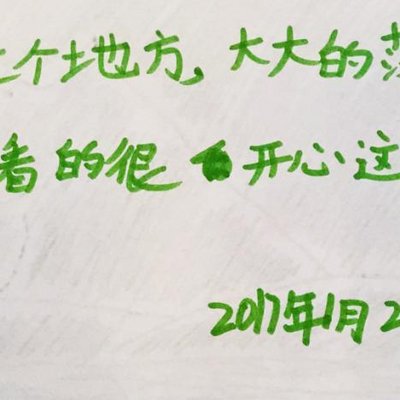 个地方,大大的
着的很开心这
2017年1月2